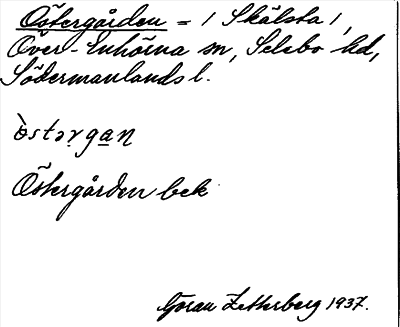 Östergården = / Skälsta /,
Över-Enhörna sn, Selebo hd,
Södermanlands l.
ö̀stərgan
Östergården bek
Göran Zetterberg 1937.